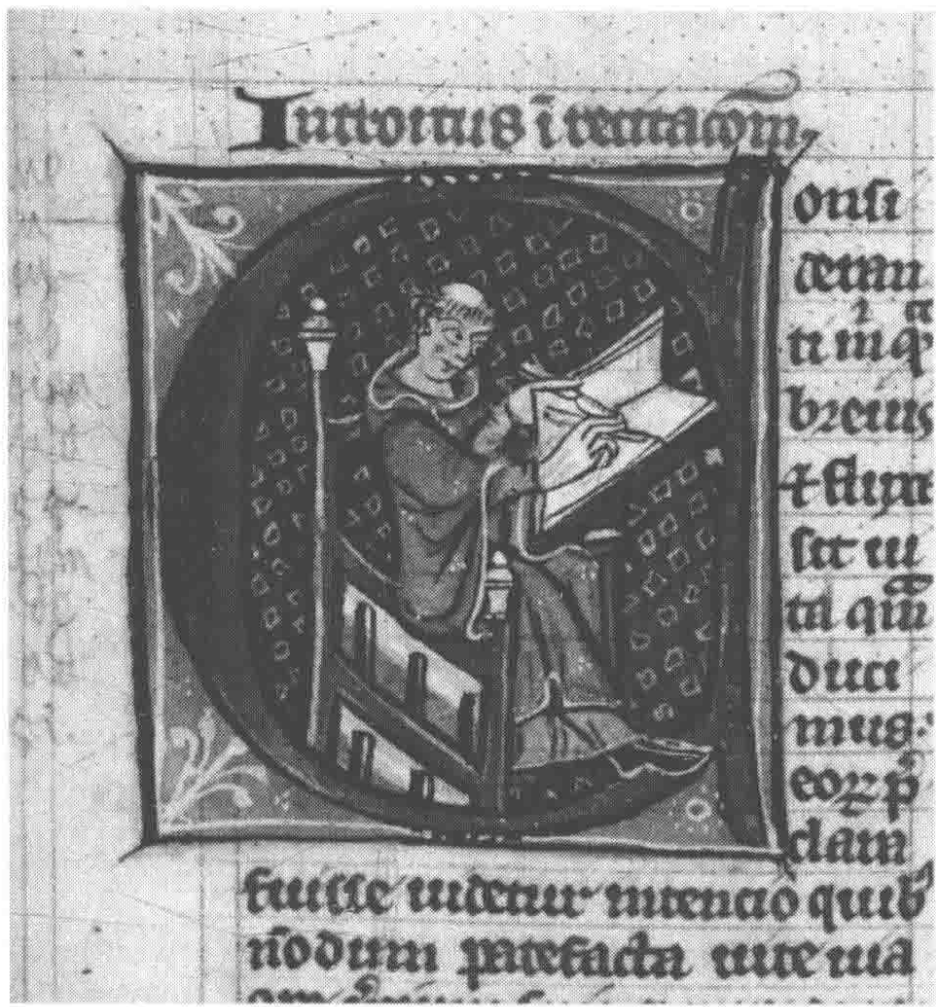 Introitus ī recitacōm
Consi
deran
ti
breuis
⁊ fluxa
sit ui
ta quā
duci
mus:
eoꝝ p̄
clara
fuisse uidetur intencio quib'
nōdum patefacta uite uia